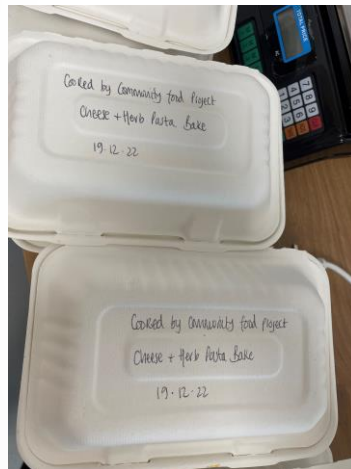 TOTAL PRICE
7 8 9
4 5 6
1 2 3
Cooked by Community food Project
Cheese + Herb Pasta Bake
19.12.22
Cooked by Community food Project
Cheese + Herb Pasta Bake
19.12.22